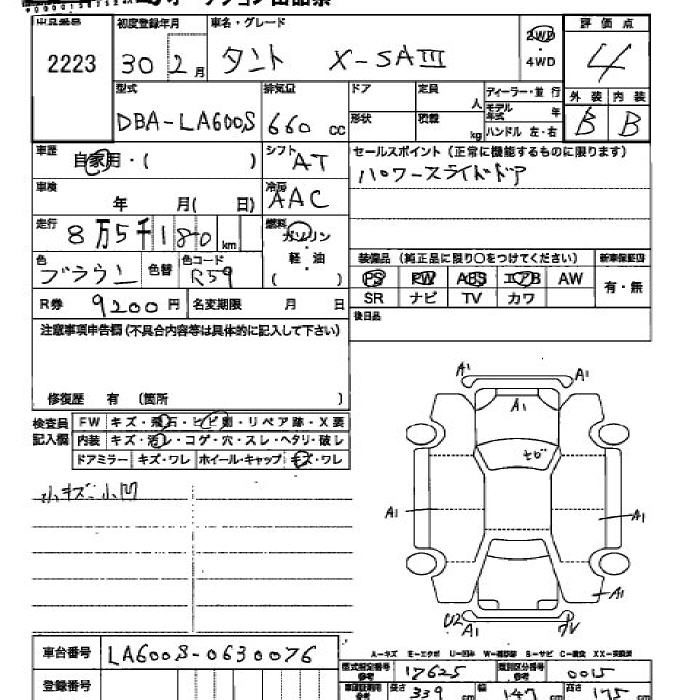 出品番号 初度登録年月 車名・グレード 2WD ・ 4WD 評価点
2223 30 2月 タント X-SAⅢ 4
型式 排気量 ドア 定員 人 ディーラー・並行 外装 内装
DBA-LA600S 660 cc 形状 積載 kg モデル年式 年 ハンドル 左・右 B B
車歴 自家用・( ) シフト AT セールスポイント(正常に機能するものに限ります)
パワースライドドア
車検 年 月( 日) 冷房 AAC
走行 8万5千180km 燃料 ガソリン
軽・油
( )
色 ブラウン 色替 色コード R59
装備品(純正品に限り○をつけてください) 新車保証書
PS PW ABS エアB AW 有・無
SR ナビ TV カワ
R券 9200円 名変期限 月 日 後日品
注意事項申告欄(不具合内容等は具体的に記入して下さい)
修復歴 有 (箇所 )
検査員記入欄 FW キズ・飛石・ヒビ割・リペア跡・X要
内装 キズ・汚レ・コゲ・穴・スレ・ヘタリ・破レ
ドアミラー キズ・ワレ ホイール・キャップ キズ・ワレ
小キズ小凹
A1 A1
A1
A1 A1
A1
U2 A1
車台番号 LA600S-0630076
登録番号
A-キズ E-エクボ U-凹み
型式指定番号 17625 類別区分番号 0015
長さ 339 cm 幅 147 cm 高さ 175 cm